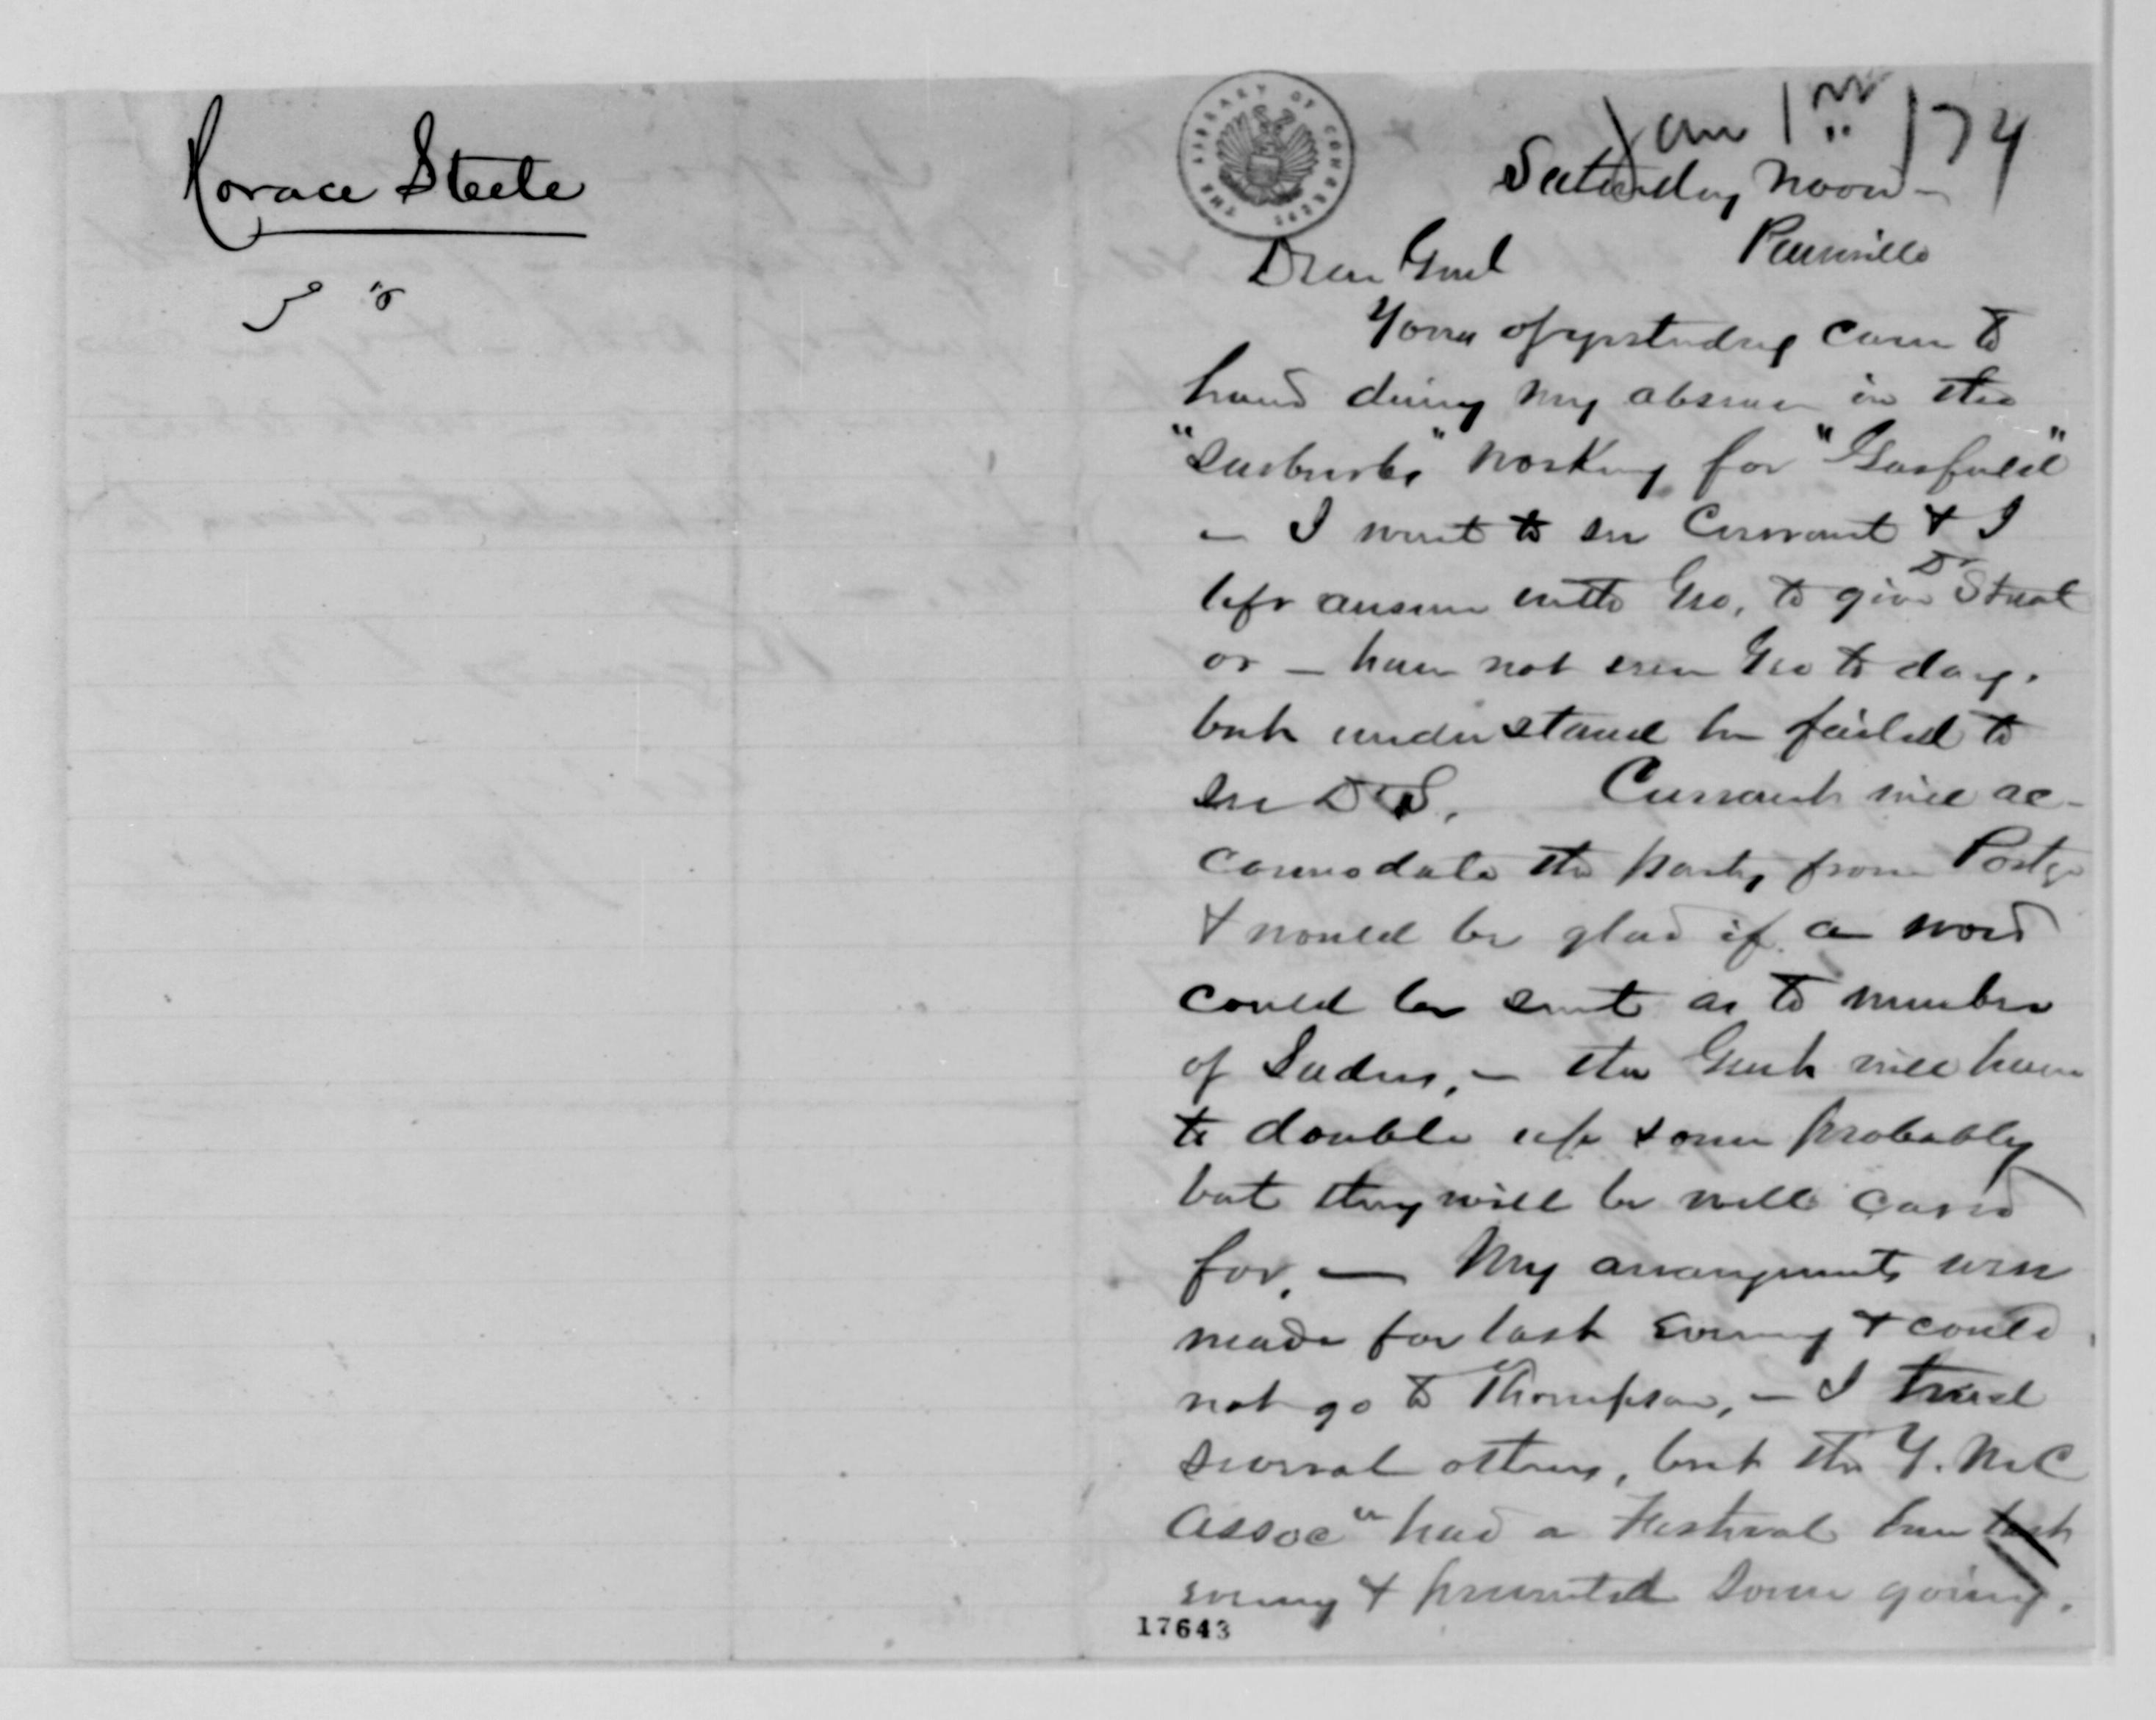 Horace Steele
Jan 174
Saturday Noon –
Painesville
Dear Genl
Yours of yesterday came to
hand during my absence in the
"Suburbs" working for "Garfield"
– I went to see Currant & I
left answer with Geo, to give Dr Streat
or – have not seen Geo to day.
but understand he failed to
see Dr S. Currant will ac-
commodate the party from Portge
& would be glad if a word
could be sent as to number
of Ladies, – the Gents will have
to double up some probably
but they will be well cared
for, – My arrangements were
made for last evening & could
not go to Thompson, – I tried
several others, but the Y. M. C
Assocn had a Festival here last
evening & prevented some going.
17643
THE LIBRARY OF CONGRESS